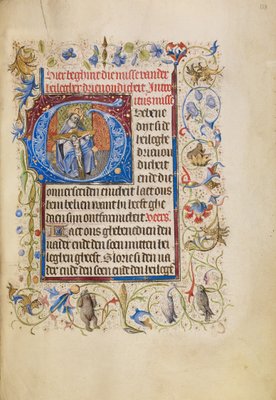 Hier beghint die misse vander
heiligher drieuondicheit. Inter
itus misse
Gebene
dit si de
heileghe
drieuon
dicheit
ende die
onuersceiden eenicheit laet ons
hem belien want hi heeft ghe
daen sijn ontfarmicheit Veers
Laet ons ghebenedien den
uader ende den soen mitten hei
leghen gheest. Glorie si den ua
der ende den soen ende den heileghē